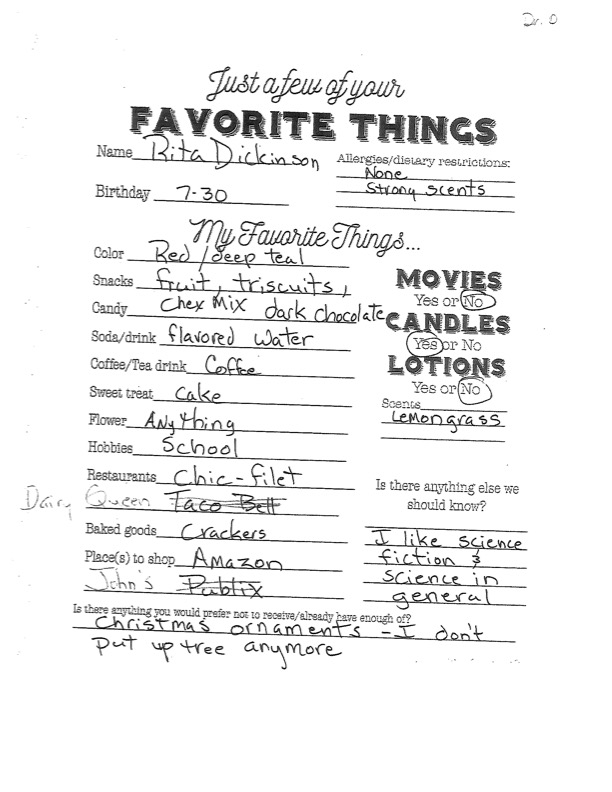 Dr. O
Just a few of your
FAVORITE THINGS
Name Rita Dickinson
Allergies/dietary restrictions:
None
Strong scents
Birthday 7-30
My Favorite Things...
Color Red / deep teal
Snacks fruit, triscuits,
Candy Chex Mix dark chocolate
Soda/drink flavored water
Coffee/Tea drink Coffee
Sweet treat cake
Flower Anything
Hobbies School
Restaurants Chic-filet
Dairy Queen Taco Bell
Baked goods Crackers
Place(s) to shop Amazon
John's Publix
MOVIES
Yes or No
CANDLES
Yes or No
LOTIONS
Yes or No
Scents
Lemongrass
Is there anything else we
should know?
I like science
fiction &
science in
general
Is there anything you would prefer not to receive/already have enough of?
Christmas ornaments - I don't
put up tree anymore